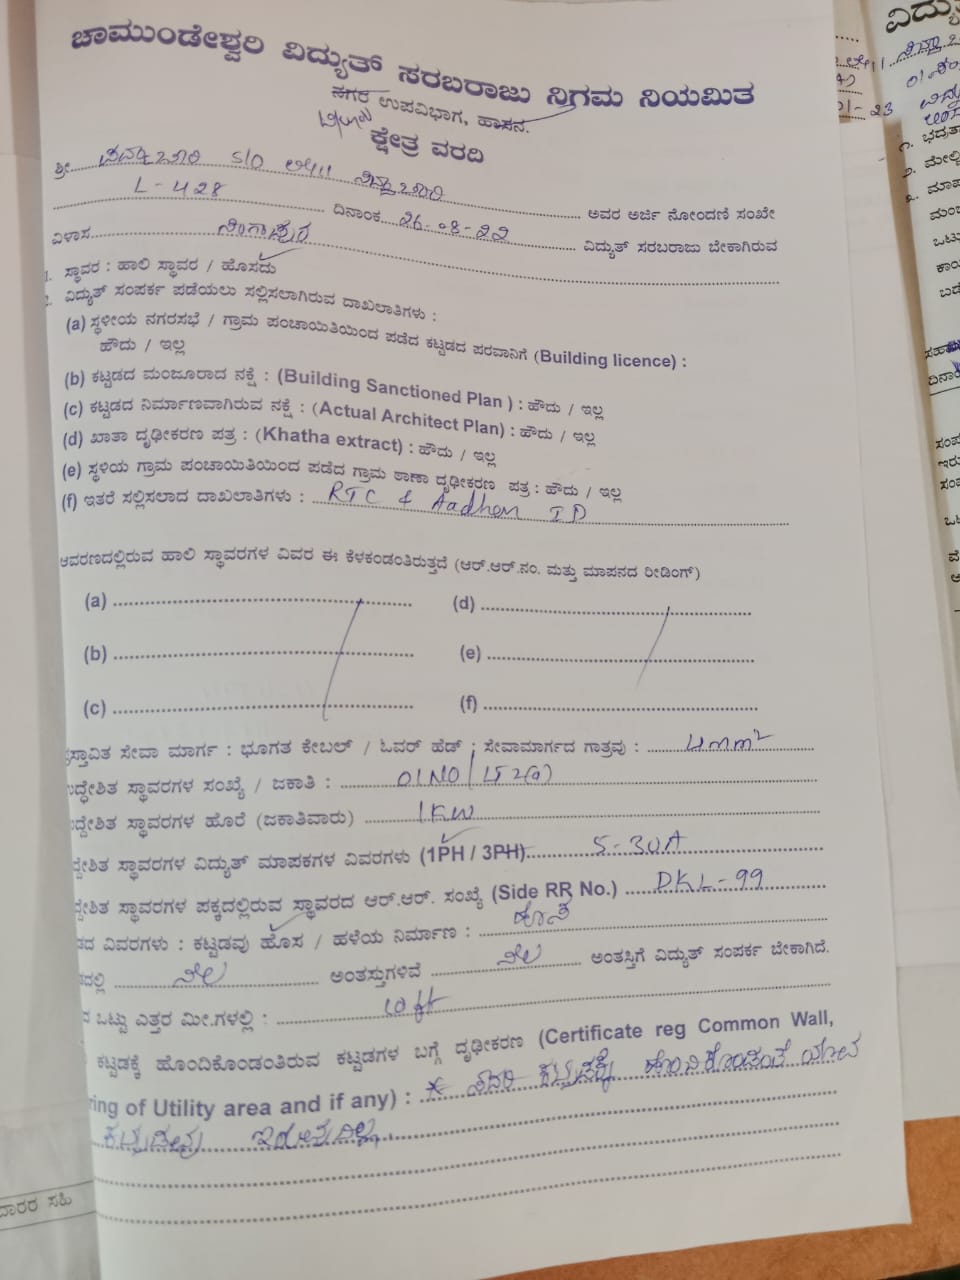 ಚಾಮುಂಡೇಶ್ವರಿ ವಿದ್ಯುತ್ ಸರಬರಾಜು ನಿಗಮ ನಿಯಮಿತ
ನಗರ ಉಪವಿಭಾಗ, ಹಾಸನ.
ಕ್ಷೇತ್ರ ವರದಿ
ಶ್ರೀ S/O
L-428 ಅವರ ಅರ್ಜಿ ನೋಂದಣಿ ಸಂಖೇ
ದಿನಾಂಕ 26-08-22 ವಿದ್ಯುತ್ ಸರಬರಾಜು ಬೇಕಾಗಿರುವ
ವಿಳಾಸ
1. ಸ್ಥಾವರ : ಹಾಲಿ ಸ್ಥಾವರ / ಹೊಸದು
2. ವಿದ್ಯುತ್ ಸಂಪರ್ಕ ಪಡೆಯಲು ಸಲ್ಲಿಸಲಾಗಿರುವ ದಾಖಲಾತಿಗಳು :
(a) ಸ್ಥಳೀಯ ನಗರಸಭೆ / ಗ್ರಾಮ ಪಂಚಾಯಿತಿಯಿಂದ ಪಡೆದ ಕಟ್ಟಡದ ಪರವಾನಿಗೆ (Building licence) :
ಹೌದು / ಇಲ್ಲ
(b) ಕಟ್ಟಡದ ಮಂಜೂರಾದ ನಕ್ಷೆ : (Building Sanctioned Plan ) : ಹೌದು / ಇಲ್ಲ
(c) ಕಟ್ಟಡದ ನಿರ್ಮಾಣವಾಗಿರುವ ನಕ್ಷೆ : (Actual Architect Plan) : ಹೌದು / ಇಲ್ಲ
(d) ಖಾತಾ ದೃಢೀಕರಣ ಪತ್ರ : (Khatha extract) : ಹೌದು / ಇಲ್ಲ
(e) ಸ್ಥಳಿಯ ಗ್ರಾಮ ಪಂಚಾಯಿತಿಯಿಂದ ಪಡೆದ ಗ್ರಾಮ ಠಾಣಾ ದೃಢೀಕರಣ ಪತ್ರ : ಹೌದು / ಇಲ್ಲ
(f) ಇತರೆ ಸಲ್ಲಿಸಲಾದ ದಾಖಲಾತಿಗಳು : RTC & ID
ಆವರಣದಲ್ಲಿರುವ ಹಾಲಿ ಸ್ಥಾವರಗಳ ವಿವರ ಈ ಕೆಳಕಂಡಂತಿರುತ್ತದೆ (ಆರ್.ಆರ್.ನಂ. ಮತ್ತು ಮಾಪನದ ರೀಡಿಂಗ್)
(a) (d)
(b) (e)
(c) (f)
ಸ್ತಾವಿತ ಸೇವಾ ಮಾರ್ಗ : ಭೂಗತ ಕೇಬಲ್ / ಓವರ್ ಹೆಡ್ ; ಸೇವಾಮಾರ್ಗದ ಗಾತ್ರವು : 4mm²
ದ್ಧೇಶಿತ ಸ್ಥಾವರಗಳ ಸಂಖ್ಯೆ / ಜಕಾತಿ : 01NO / LT 2(a)
ದ್ಧೇಶಿತ ಸ್ಥಾವರಗಳ ಹೊರೆ (ಜಕಾತಿವಾರು) 1KW
ದ್ದೇಶಿತ ಸ್ಥಾವರಗಳ ವಿದ್ಯುತ್ ಮಾಪಕಗಳ ವಿವರಗಳು (1PH / 3PH) 5-30A
ದ್ದೇಶಿತ ಸ್ಥಾವರಗಳ ಪಕ್ಕದಲ್ಲಿರುವ ಸ್ಥಾವರದ ಆರ್.ಆರ್. ಸಂಖ್ಯೆ (Side RR No.) DKL-99
ಡದ ವಿವರಗಳು : ಕಟ್ಟಡವು ಹೊಸ / ಹಳೆಯ ನಿರ್ಮಾಣ : ಹೊಸ
ದಲ್ಲಿ ನೆಲ ಅಂತಸ್ತುಗಳಿವೆ ನೆಲ ಅಂತಸ್ತಿಗೆ ವಿದ್ಯುತ್ ಸಂಪರ್ಕ ಬೇಕಾಗಿದೆ.
ಒಟ್ಟು ಎತ್ತರ ಮೀ.ಗಳಲ್ಲಿ : 10 ft
ಕಟ್ಟಡಕ್ಕೆ ಹೊಂದಿಕೊಂಡಂತಿರುವ ಕಟ್ಟಡಗಳ ಬಗ್ಗೆ ದೃಢೀಕರಣ (Certificate reg Common Wall,
ring of Utility area and if any) : * ಸದರಿ ಕಟ್ಟಡಕ್ಕೆ ಹೊಂದಿಕೊಂಡಂತೆ ಯಾವ
ಕಟ್ಟಡವು ಇರುವುದಿಲ್ಲ.
ದಾರರ ಸಹಿ